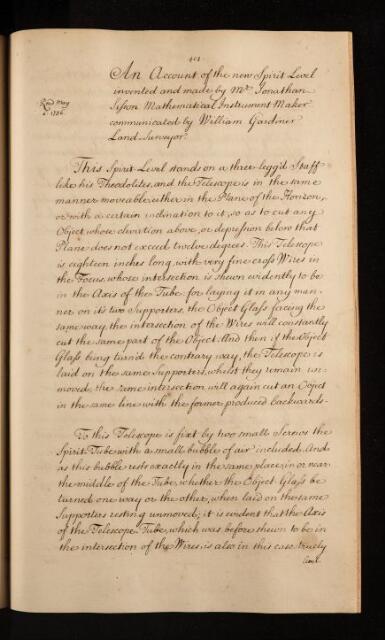 401
An Account of the new Spirit Level
invented and made by Mr. Jonathan
Sisson Mathematical Instrument Maker
communicated by William Gardiner
Land Surveyor.
Read May
1736.
This Spirit Level stands on a three legg'd Staff
like his Theodolites, and the Telescope is in the same
manner moveable either in the Plane of the Horizon,
or with a certain inclination to it, so as to cut any
Object whose elevation above, or depression below that
Plane does not exceed twelve degrees. This Telescope
is eighteen inches long, with very fine cross Wires in
the Focus, whose intersection is shewn evidently to be
in the Axis of the Tube for laying it in any man-
ner on its two Supporters, the Object Glass facing the
same way, the intersection of the Wires will constantly
cut the same part of the Object. And then if the Object
Glass being turn'd the contrary way, the Telescope is
laid on the same Supporters, whilst they remain un-
moved, the same intersection will again cut an Object
in the same line with the former produced backwards.
To this Telescope is fixt by two small Screws the
Spirit Tube with a small bubble of air included. And
as this bubble rests exactly in the same place, in or near
the middle of the Tube, whether the Object Glass be
turned one way or the other, when laid on the same
Supporters resting unmoved; it is evident that the Axis
of the Telescope Tube, which was before shewn to be in
the intersection of the Wires, is also in this case truely